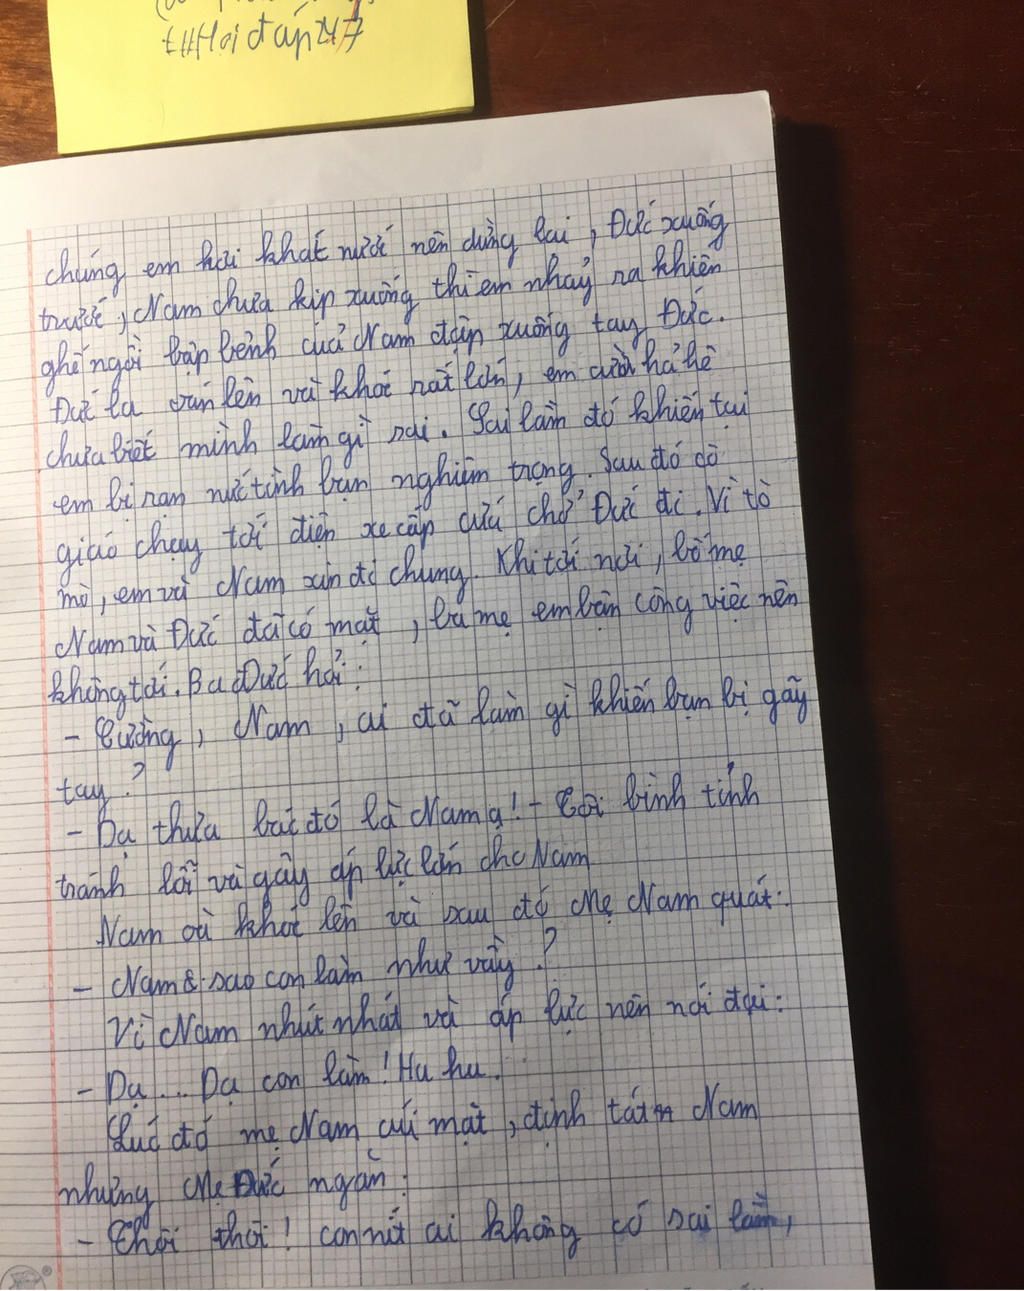 t#Hỏi đáp 247
chúng em hơi khát nước nên dừng lại, Đức xuống
trước, Nam chưa kịp xuống thì em nhảy ra khiến
ghế ngồi bập bênh của Nam đập xuống tay Đức.
Đức la oán lên và khóc rất lớn, em cười hả hê
chưa biết mình làm gì sai. Sai lầm đó khiến tụi
em bị rạn nứt tình bạn nghiêm trọng. Sau đó cô
giáo chạy tới điện xe cấp cứu chở Đức đi. Vì tò
mò, em và Nam xin đi chung. Khi tới nơi, bố mẹ
Nam và Đức đã có mặt, ba mẹ em bận công việc nên
không tới. Ba Đức hỏi:
- Cường, Nam, ai đã làm gì khiến bạn bị gãy
tay?
- Dạ thưa bác đó là Nam ạ! - Tôi bình tỉnh
tránh lỗi và gây áp lực lớn cho Nam
Nam oà khóc lên và sau đó Mẹ Nam quát:
- Nam sao con làm như vầy?
Vì Nam nhút nhát và áp lực nên nói đại:
- Dạ... Dạ con làm! Hu hu.
Lúc đó mẹ Nam cúi mặt, định tát Nam
nhưng Mẹ Đức ngăn:
- Thôi thôi! con nít ai không có sai lầm,